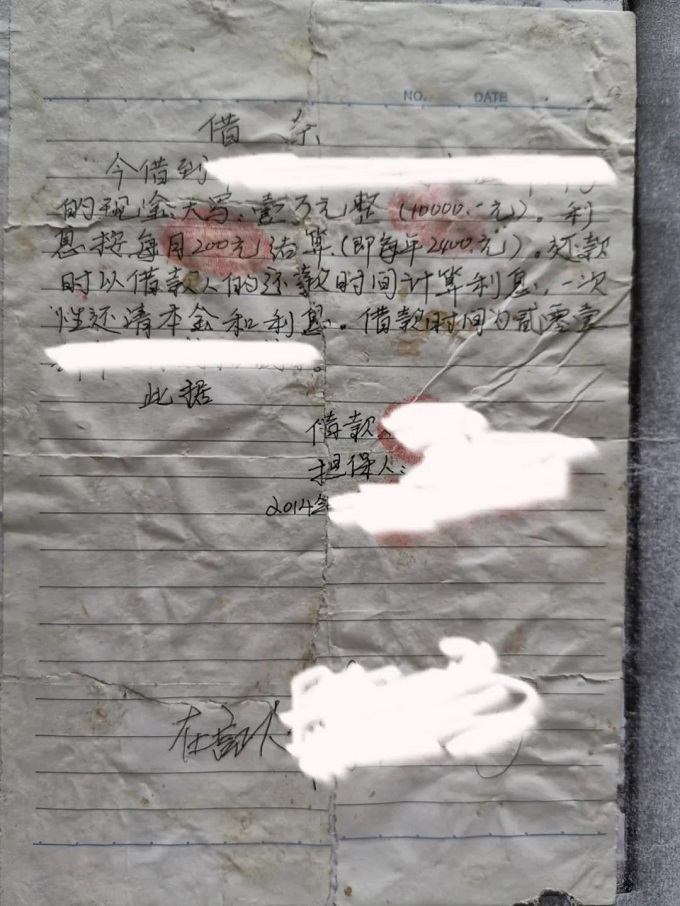 NO. DATE
借 条
今借到
的现金大写:壹万元整(10000.-元)。利
息按每月200元结算(即每年2400.元)。还款
时以借款人的还款时间计算利息,一次
性还清本金和利息。借款时间为贰零壹
此据
借款
担保人:
2014年